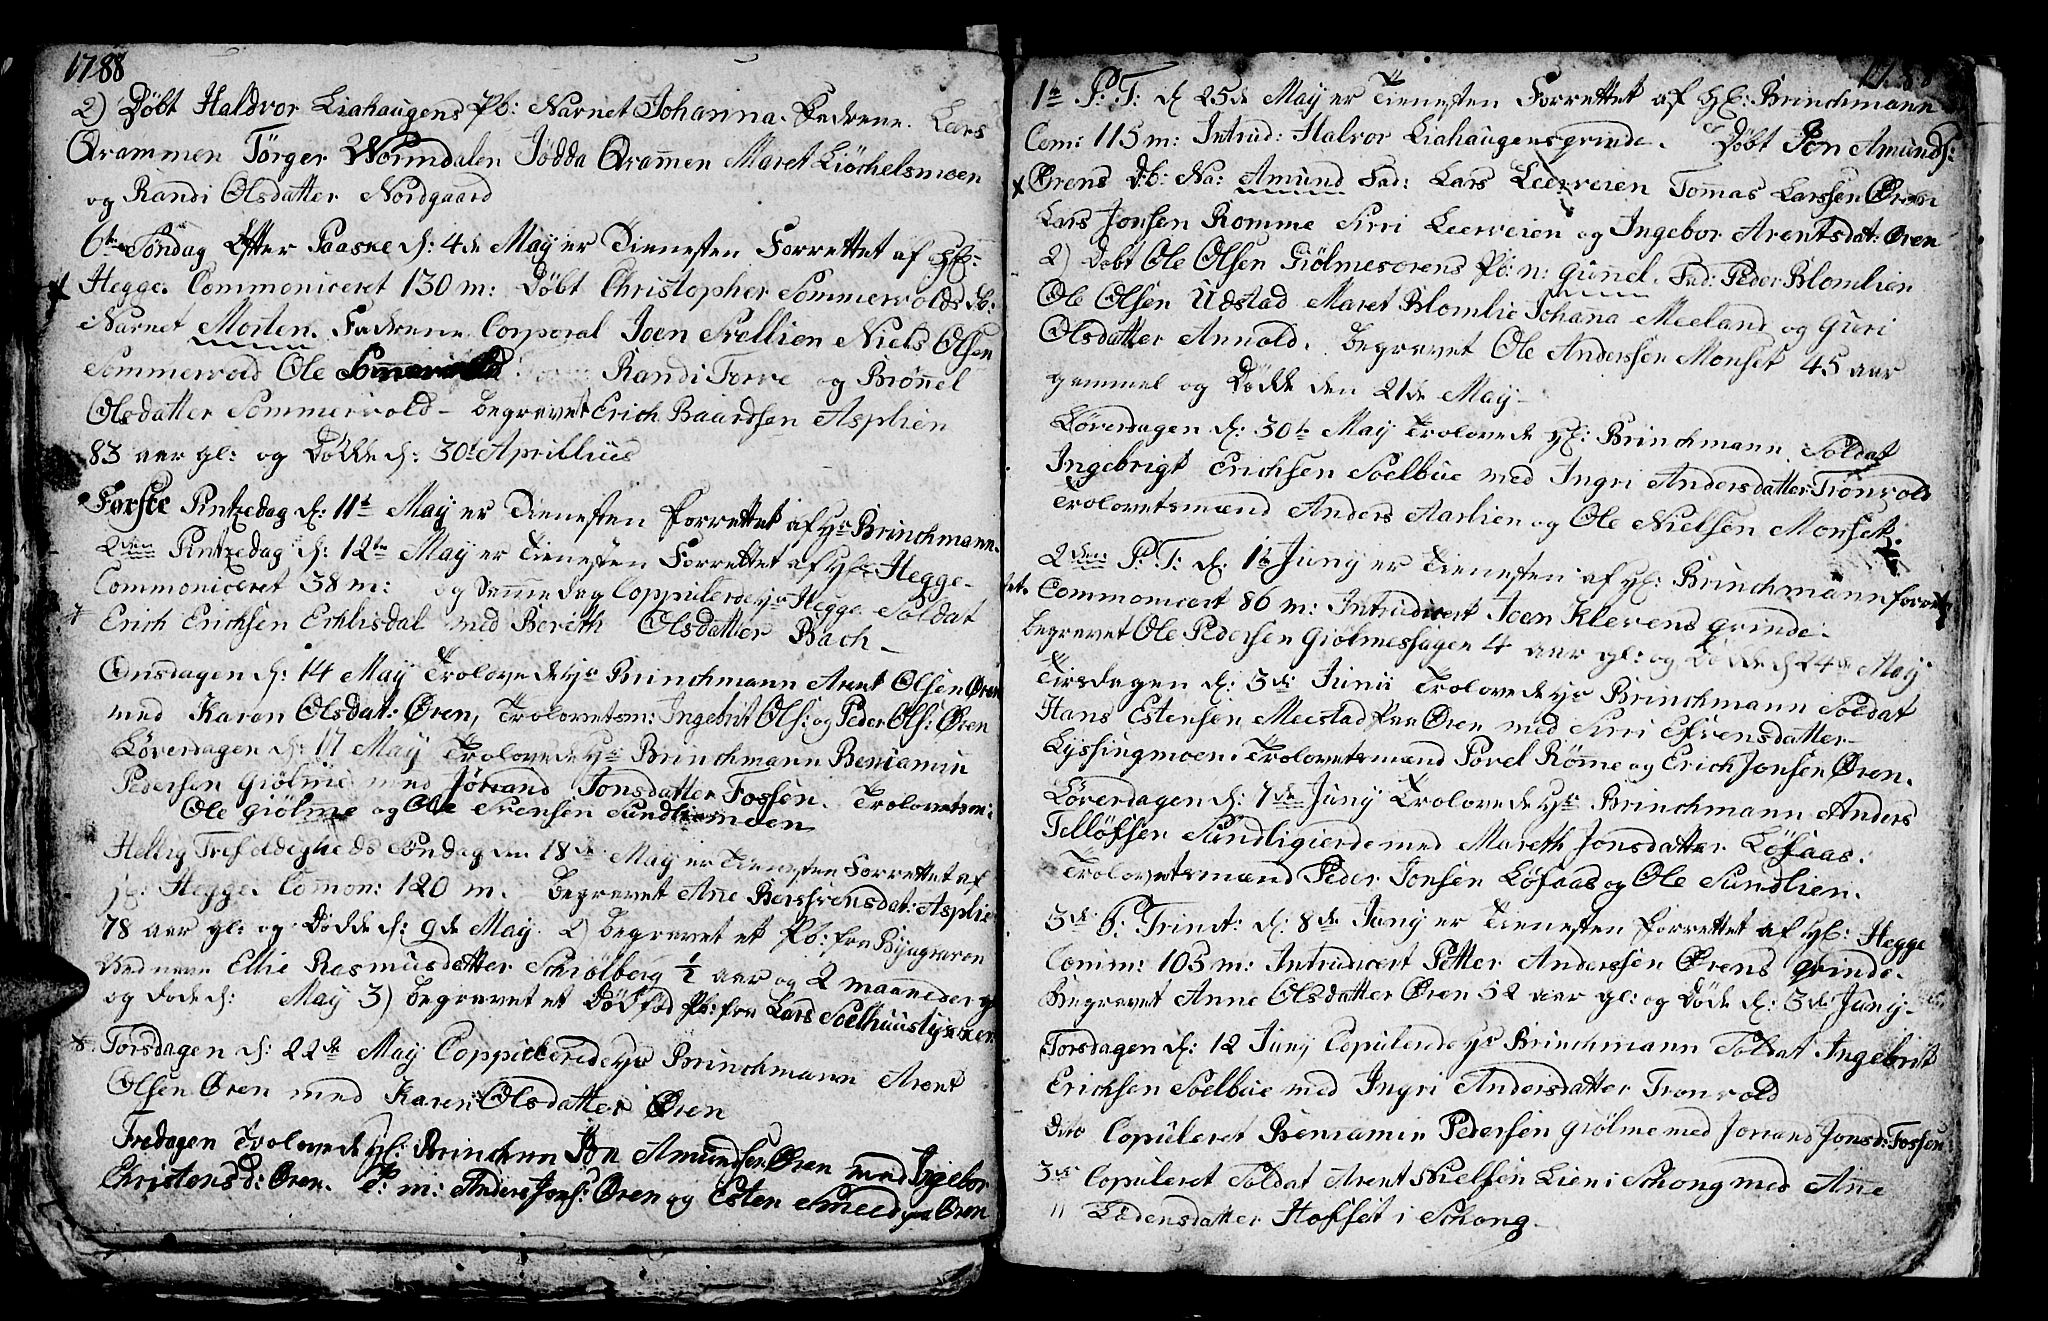 1788
2) Døbt Haldvor Liahaugens Pb: Navnet Johanna. Fadrene. Lars
Drammen Törger Wormdalen Jödda Drammen Maret Liöchelsmoen
og Randi Olsdatter Nordgaard
6te Søndag Efter Paaske d: 4de May er Tienesten Forrettet af Hr:
Hegge. Commoniceret 130 m: Døbt Christopher Sommervolds db:
Navnet Morten. Fadrene Corporal Joen Nellien Niels Olsen
Sommervold Ole Randi Torve og Brønnel
Olsdatter Sommervold - begravet Erich Baardsen Asplien
83 aar gl: og Døde d: 30t Aprillius
Første Pintzedag d: 11te May er Tienesten forrettet af Hr Brinchmann.
2den Pintzedag d: 12te May er Tienesten Forrettet af Hr: Hegge-
Commoniceret 38 m: og Samme dag Coppulerede Hr Hegge Soldat
Erich Erichsen Echlisdal med Bereth Olsdatter Bach -
Onsdagen d: 14 May Trolovede Hr Brinchmann Arent Olsen Øren
med Karen Olsdat: Øren, Trolovetsm: Ingebrit Ols: og Peder Ols: Øren
Løverdagen d: 17 May Trolovede Hr Brinchmann Beniamin
Pedersen Giølme med Jörand Jonsdatter Fossen. Trolovetsm:
Ole Giølme og Ole Svensen Sundliemoen
Hellig Trefoldigheds Søndag den 18de May er Tienesten Forrettet af
Hr: Hegge. Comon: 120 m. Begravet Ane Bersvensdat: Asplie
78 aar gl: og Døde d: 9de May 2) begravet et Pb: fra Bynagraven
ved navn Ellie Rasmusdatter Schiölberg 1/2 aar og 2 maaneder gl
og døde d: May 3) begravet et Dødfød Pb: fra Lars Soelhuustyaren
Torsdagen d: 22de May Coppulerede Hr Brinchmann Arent
Olsen Øren med Karen Olsdatter Øren
Fredagen Trolovede Hr: Brinchmn Jon Amundsen Øren med Ingebor
Christensd: Øren. T: m: Anders Jons: Øren og Esten Smed paa Øren
1788
1te P: T: d 25de May er Tienesten Forrettet af Hr: Brinchmann
Com: 115 m: Intrud: Halvor Liahaugens qvinde. Døbt Jon Amunds:
Ørens Db: Na: Amund Fad: Lars Leerveien Tomas Larssen Øren
Lars Jonsen Romme Sirri Leerveien og Ingebor Arentsdat: Øren
2) Døbt Ole Olsen Giölmesørens Pb: n: Gunel. Fad: Peder Blomlien
Ole Olsen Udstad Maret Blomlie Johanna Meeland og Guri
Olsdatter Annold. begravet Ole Anderssen Monset 45 aar
gammel og Døde den 21de May -
Løverdagen d: 30te May Trolovede Hr: Brinchmann Soldat
Ingebrigt Erichsen Soelbue med Ingri Andersdatter Tronvold
Trolovetsmænd Anders Aarlien og Ole Nielsen Monset.
2den P: T: d: 1te Juny er Tienesten af Hr: Brinchmann forret
tet. Commonicert 86 m: Intrudicert Joen Klevens qvinde.
begravet Ole Pedersen Giølmeshagen 4 aar gl: og Døde d 24de May
Tirsdagen d: 3de Junii Trolovede Hr Brinchmann Soldat
Hans Estensen Meestad paa Øren med Sirri Efvensdatter
Lyssingmoen. Trolovetsmænd Povel Römme og Erich Jonsen Øren.
Løverdagen d: 7de Juny Trolovede Hr Brinchmann Anders
Tellöfsen Sundligierde med Mareth Jonsdatter Löfaas.
Trolovetsmænd Peder Jonsen Løfaas og Ole Sundlien.
3de S: Trinit: d: 8de Juny er Tienesten forrettet af Hr: Hegge
Comm: 105 m: Intrudicert Petter Anderssen Ørens qvinde.
Begravet Anne Olsdatter Øren 52 aar gl: og Døde d: 3de Juny -
Torsdagen d: 12 Juny Copulerede Hr Brinchmann Soldat Ingebrit
Erichsen Soelbue med Ingri Andersdatter Tronvold
Dito Copuleret Beniamin Pedersen Giølme med Jorand Jonsd: Fossen
3de Copuleret Soldat Arent Nielsen Lien i Schong med Ane
Lodensdatter Hofset i Schong -